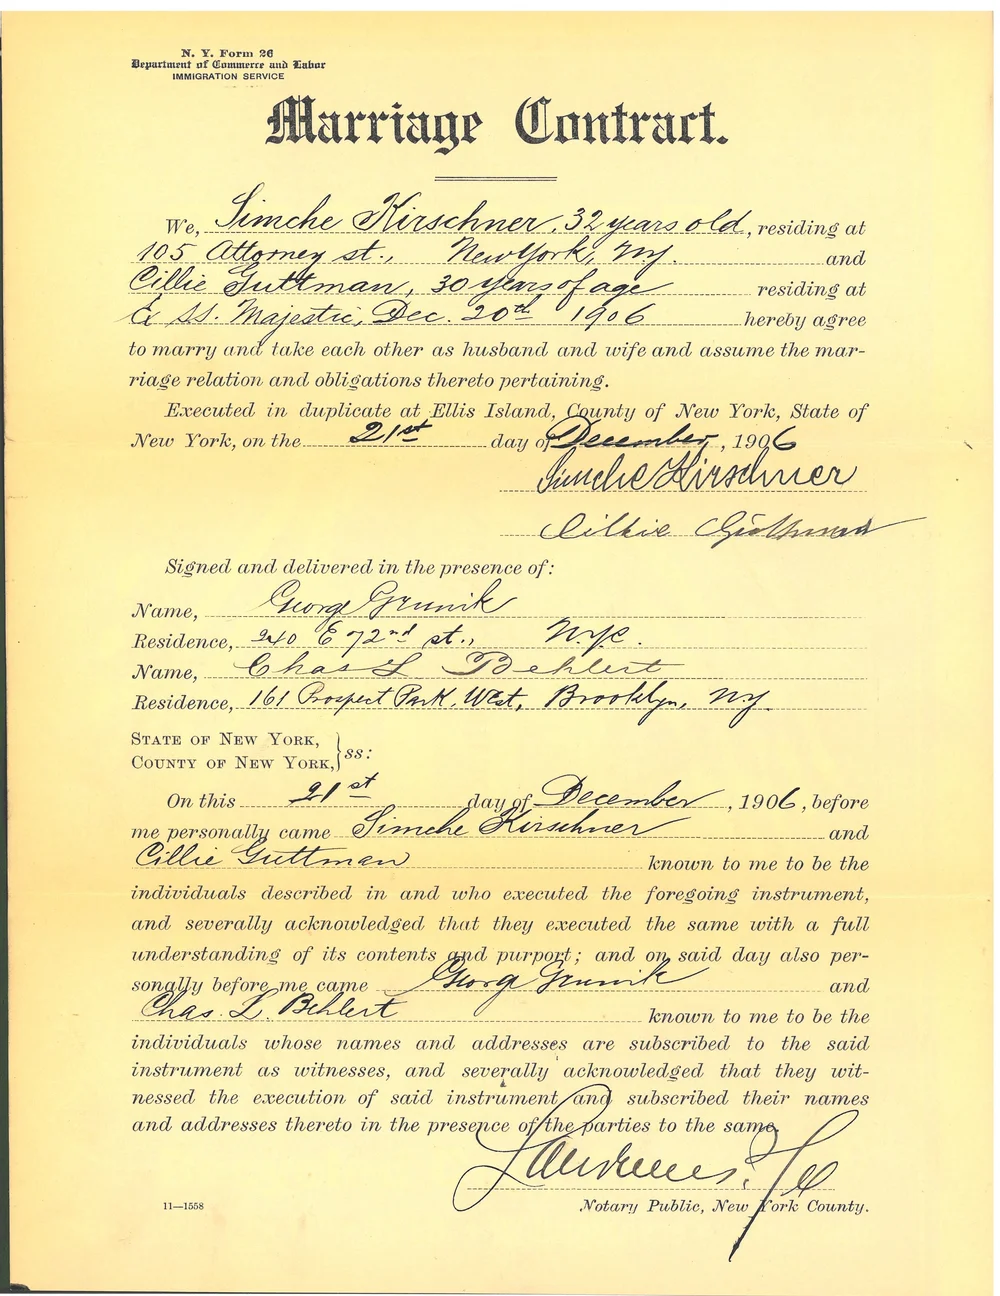 N. Y. Form 26
Department of Commerce and Labor
IMMIGRATION SERVICE
Marriage Contract.
We, Simche Kirschner, 32 years old, residing at
105 Attorney st., New York, NY. and
Cillie Guttman, 30 years of age residing at
Ex SS. Majestic, Dec. 20th 1906 hereby agree
to marry and take each other as husband and wife and assume the mar-
riage relation and obligations thereto pertaining.
Executed in duplicate at Ellis Island, County of New York, State of
New York, on the 21st day of December, 1906
Simche Kirschner
Cillie Guttman
Signed and delivered in the presence of:
Name, George Grunik
Residence, 240 E 72nd st., N.Y.C.
Name, Chas L Behlert
Residence, 161 Prospect Park, West, Brooklyn, NY.
STATE OF NEW YORK,
COUNTY OF NEW YORK, } ss:
On this 21st day of December, 1906, before
me personally came Simche Kirschner and
Cillie Guttman known to me to be the
individuals described in and who executed the foregoing instrument,
and severally acknowledged that they executed the same with a full
understanding of its contents and purport; and on said day also per-
sonally before me came George Grunik and
Chas. L. Behlert known to me to be the
individuals whose names and addresses are subscribed to the said
instrument as witnesses, and severally acknowledged that they wit-
nessed the execution of said instrument and subscribed their names
and addresses thereto in the presence of the parties to the same.
Notary Public, New York County.
11—1558